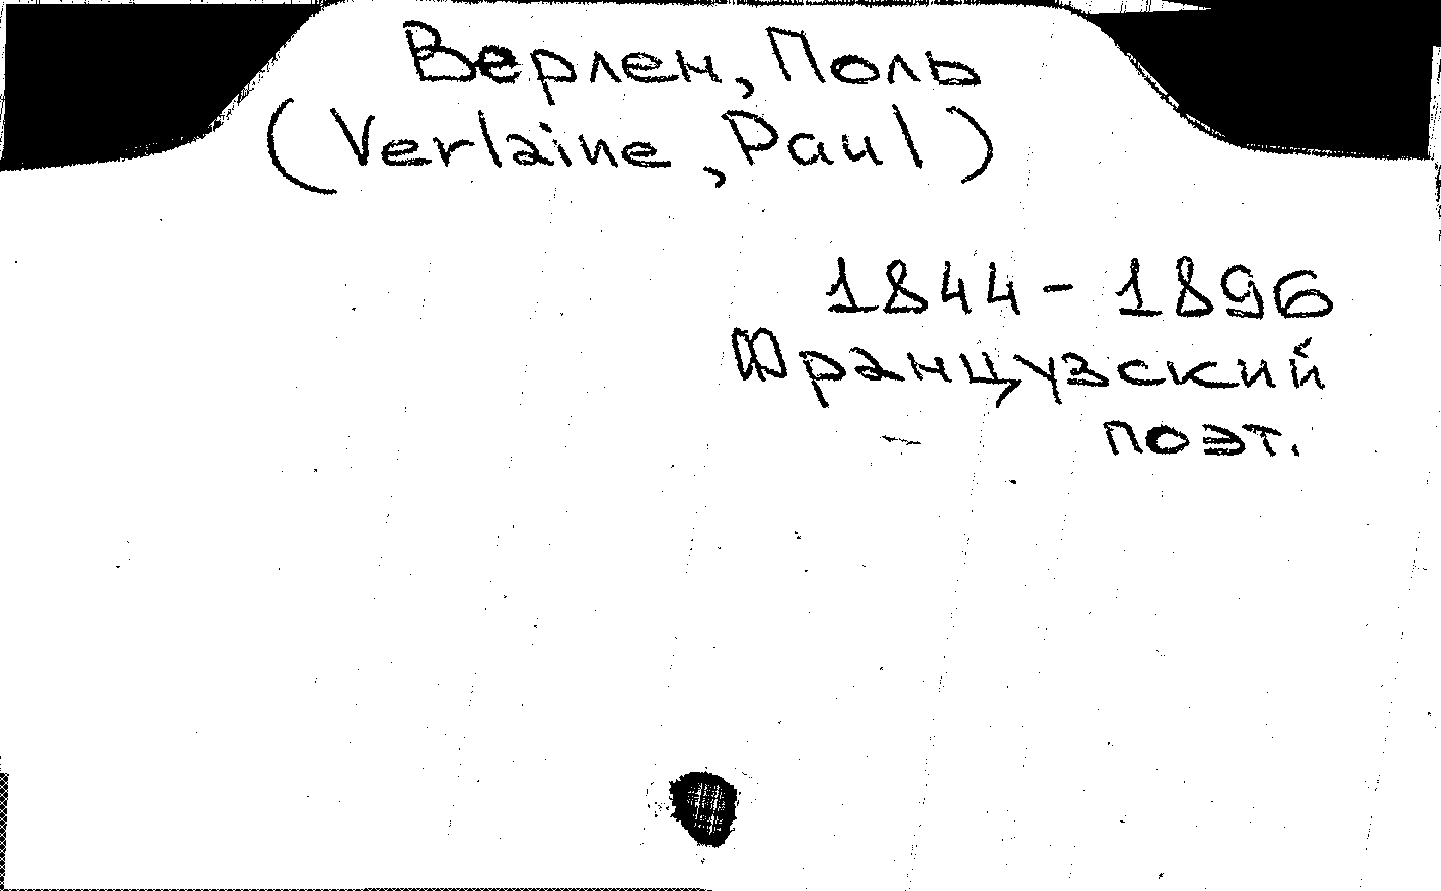 Верлен, Поль
(Verlaine, Paul)
1844 - 1896
Французский
поэт.